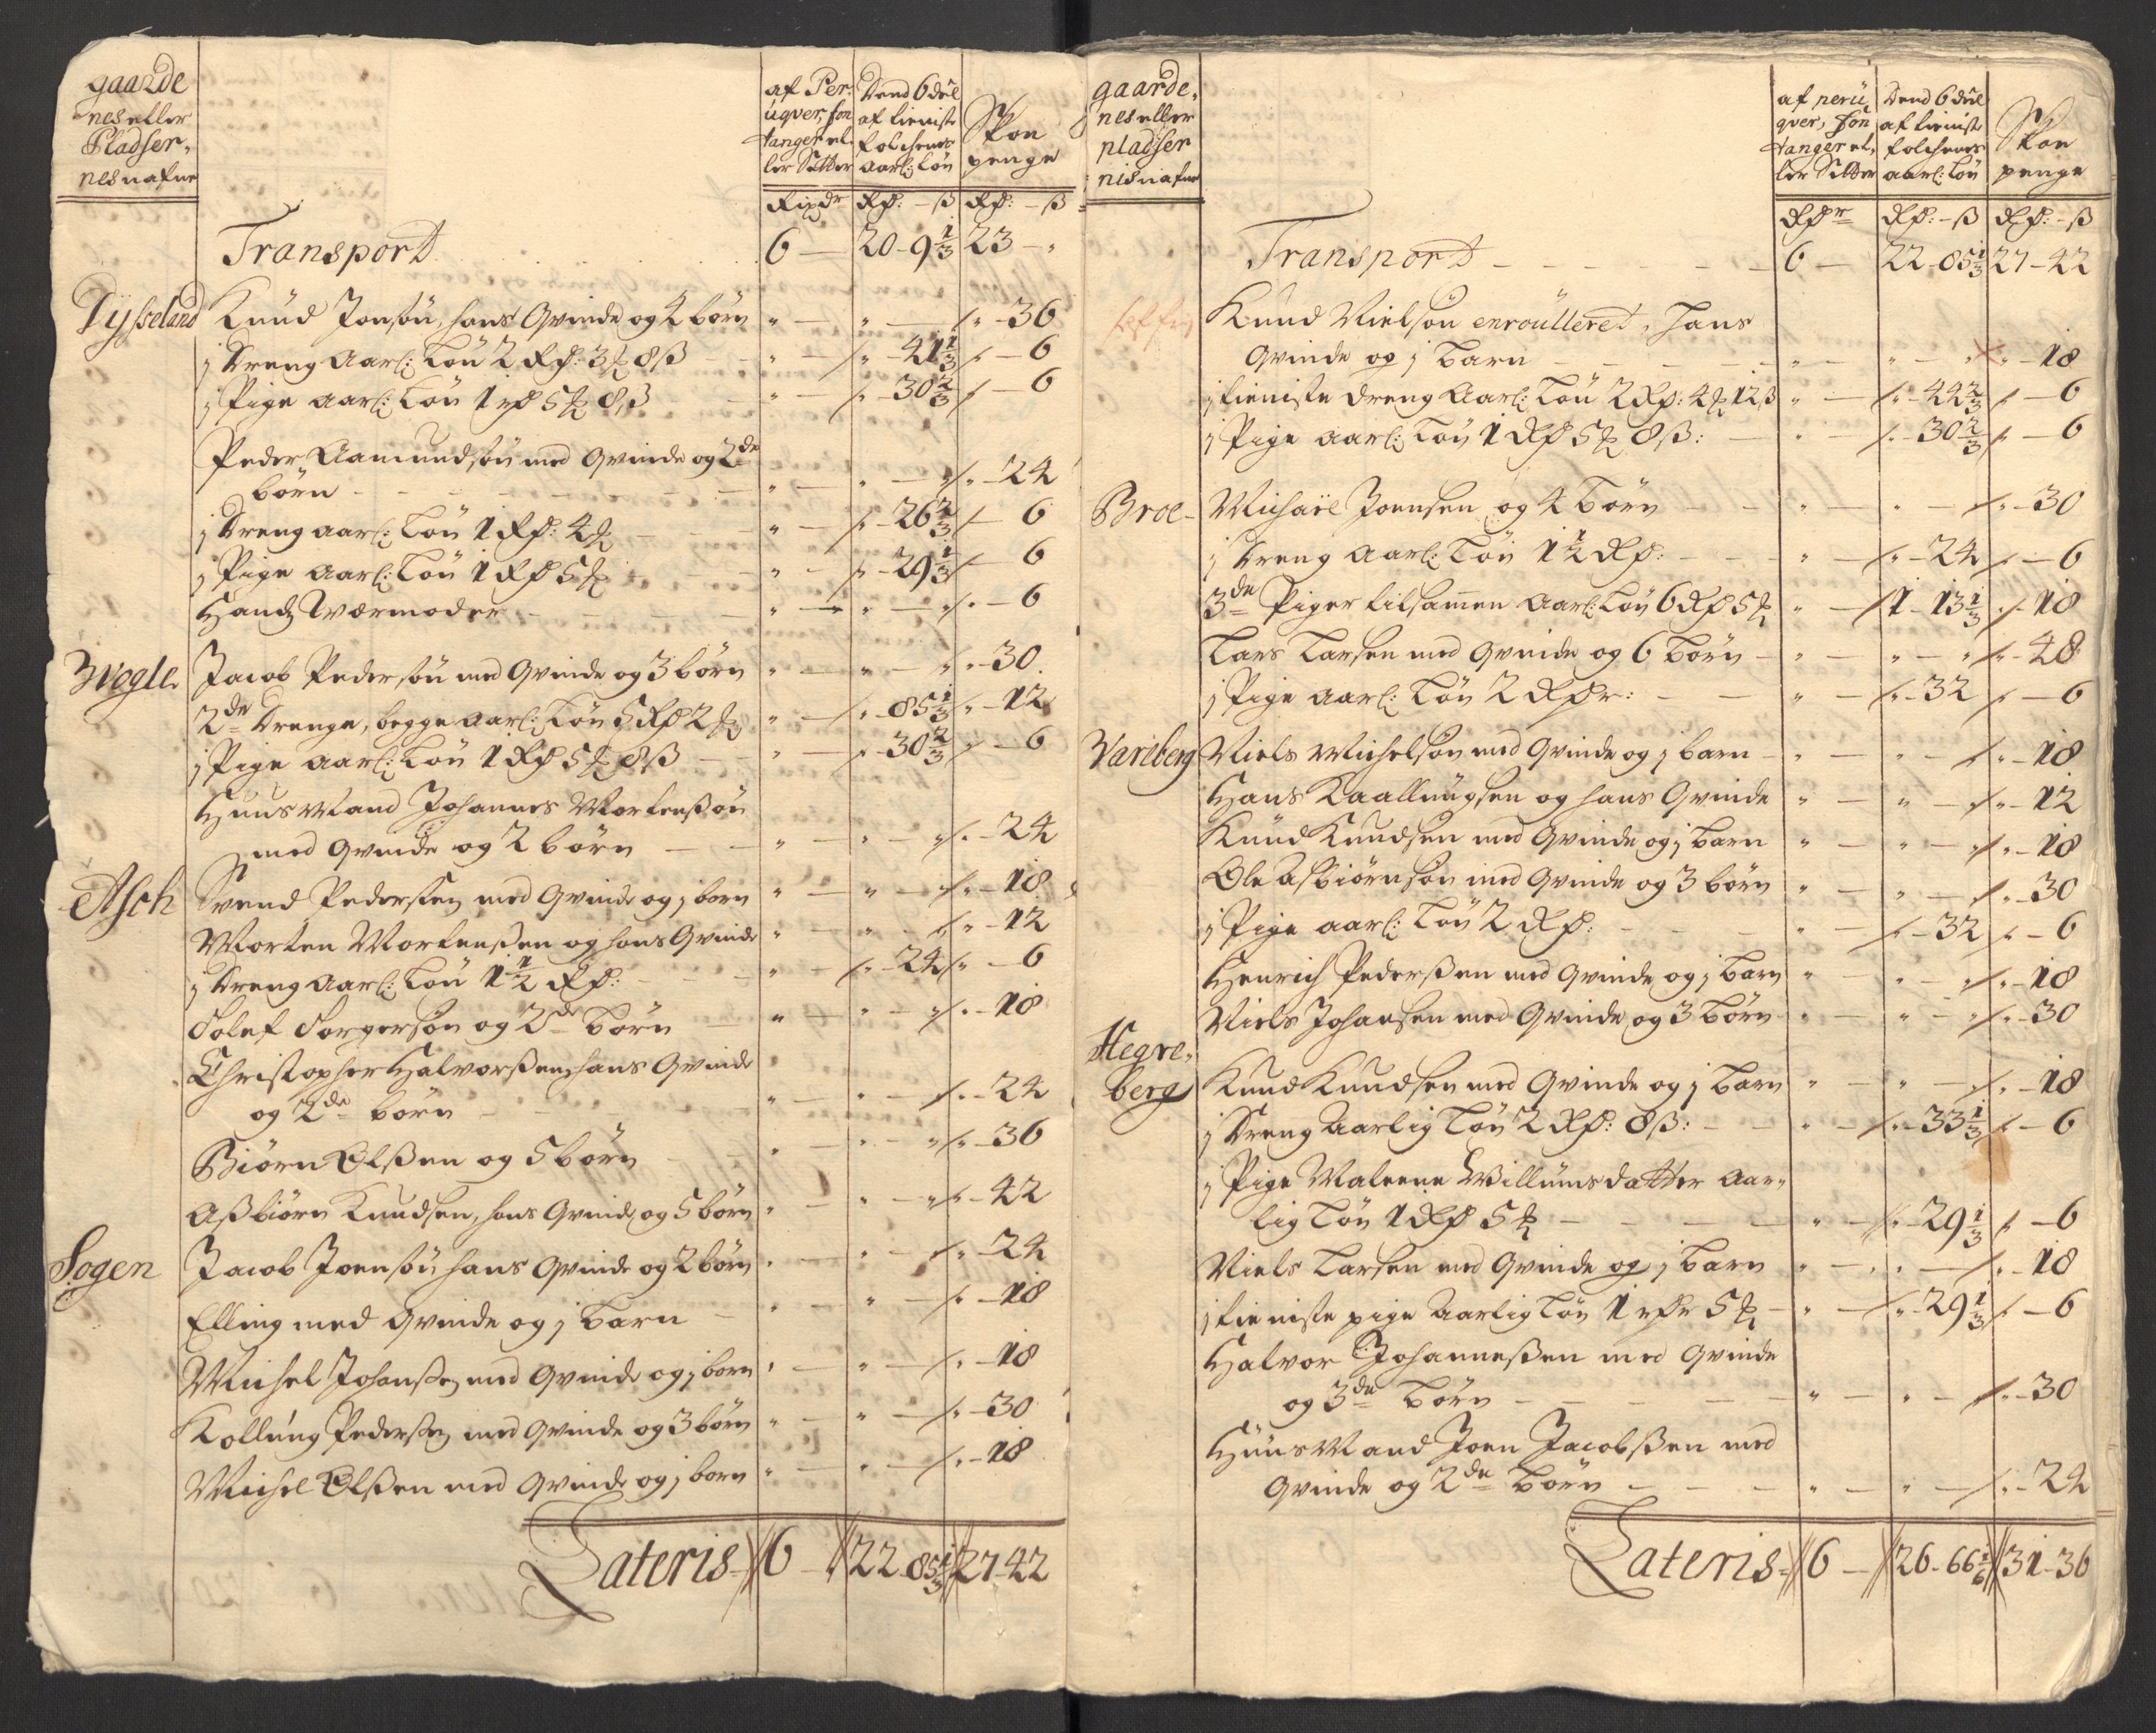 gaarde
nes eller
Pladser,
nes nafne
af Per:
uqver, fon
tanger el.
ler Sætter
Dend 6 deel
af tieniste
folchenes
aarl: Løn
Skoe
penge
Rixdr Rd: - ß Rd: - ß
Transport 6 — 20 - 9 1/3 23 - „
Dysseland Knud Jonsøn, hans Qvinde og 4 børn „ — „ — „ - 36
j Dreng Aarl: Løn 2 Rd: 3 ₰ 8 ß „ — „ - 41 1/3 „ - 6
j Pige aarl: Løn 1 rd 5 ₰ 8 ß „ — „ - 30 2/3 „ - 6
Peder Aamundsøn med Qvinde og 2de
børn „ — „ — „ - 24
j Dreng aarl: Løn 1 Rd: 4 ₰ „ — „ - 26 2/3 „ - 6
j Pige aarl: Løn 1 Rd 5 ₰ „ — „ - 29 1/3 „ - 6
Hands Værmoder „ — „ — „ - 6
Wogle Jacob Pedersøn med Qvinde og 3 børn „ — „ — „ - 30
2de Drenge, begge aarl: Løn 5 Rd 2 ₰ „ — „ - 85 1/3 „ - 12
j Pige aarl: Løn 1 Rd 5 ₰ 8 ß „ — „ - 30 2/3 „ - 6
Huus Mand Johannes Mortensøn
med Qvinde og 2 børn „ — „ — „ - 24
Asch Svend Pederssen med Qvinde og j born „ — „ — „ - 18
Morten Mortenssen og hans Qvinde „ — „ — „ - 12
j Dreng Aarl: Løn 1 1/2 Rd: „ — „ - 24 „ - 6
Tolef Torgersøn og 2de børn „ — „ — „ - 18
Christopher Halvorssen, hans Qvinde
og 2de børn „ — „ — „ - 24
Biørn Olssen og 5 børn „ — „ — „ - 36
Assbiørn Knudsen, hans Qvinde og 5 børn „ — „ — „ - 42
Sogen Jacob Joensøn hans Qvinde og 2 børn „ — „ — „ - 24
Elling med Qvinde og j barn „ — „ — „ - 18
Michel Johanssen med Qvinde og j born „ — „ — „ - 18
Kollung Pederssen med Qvinde og 3 børn „ — „ — „ - 30
Michel Olssen med Qvinde og j born „ — „ — „ - 18
Lateris 6 — 22 - 85 1/3 27 - 42
gaarde,
nes eller
pladser
nes nafne
af perü,
qver, fon
tanger el,
ler Sætter
Dend 6 deel
af tieniste
folchenes
aarl: Løn
Skoe
penge
Rdr Rd: - ß Rd: - ß
Transport 6 — 22 - 85 1/3 27 - 42
Knud Nielsøn enroulleret, Hans
Qvinde og j barn „ — „ — „ - 18
j tieniste Dreng Aarl: Løn 2 Rd: 4 ₰ 12 ß „ — „ - 44 2/3 „ - 6
j Pige aarl: Løn 1 Rd 5 ₰ 8 ß: „ — „ - 30 2/3 „ - 6
Broe Michael Joensen og 4 børn „ — „ — „ - 30
j Dreng Aarl: Løn 1 1/2 Rd: „ — „ - 24 „ - 6
3de Piger tilsamen Aarl: Løn 6 Rd 5 ₰ „ — 1 - 13 1/3 „ - 18
Lars Larsen med Qvinde og 6 børn „ — „ — „ - 48
j Pige aarl: Løn 2 Rdr: „ — „ - 32 „ - 6
Vareberg Niels Michelsøn med Qvinde og j barn „ — „ — „ - 18
Hans Kaallungsen og hans Qvinde „ — „ — „ - 12
Knud Knudsen med Qvinde og j barn „ — „ — „ - 18
Ole Asbiørnsøn med Qvinde og 3 børn „ — „ — „ - 30
j Pige aarl: Løn 2 Rd: „ — „ - 32 „ - 6
Henrich Pederssen med Qvinde og j barn „ — „ — „ - 18
Niels Johansen med Qvinde og 3 børn „ — „ — „ - 30
Hegre,
berg Knud Knudsen med Qvinde og j barn „ — „ — „ - 18
j Dreng Aarlig Løn 2 Rd: 8 ß: „ — „ - 33 1/3 „ - 6
j Pige Maleene Willumsdatter Aar,
lig Løn 1 Rd 5 ₰ „ — „ - 29 1/3 „ - 6
Niels Larsen med Qvinde og j barn „ — „ — „ - 18
j tieniste pige Aarlig Løn 1 rdr 5 ₰ „ — „ - 29 1/3 „ - 6
Halvor Johannessen med Qvinde
og 3de børn „ — „ — „ - 30
Huus Mand Joen Jacobssen med
Qvinde og 2de børn „ — „ — „ - 24
Lateris 6 — 26 - 66 1/6 31 - 36